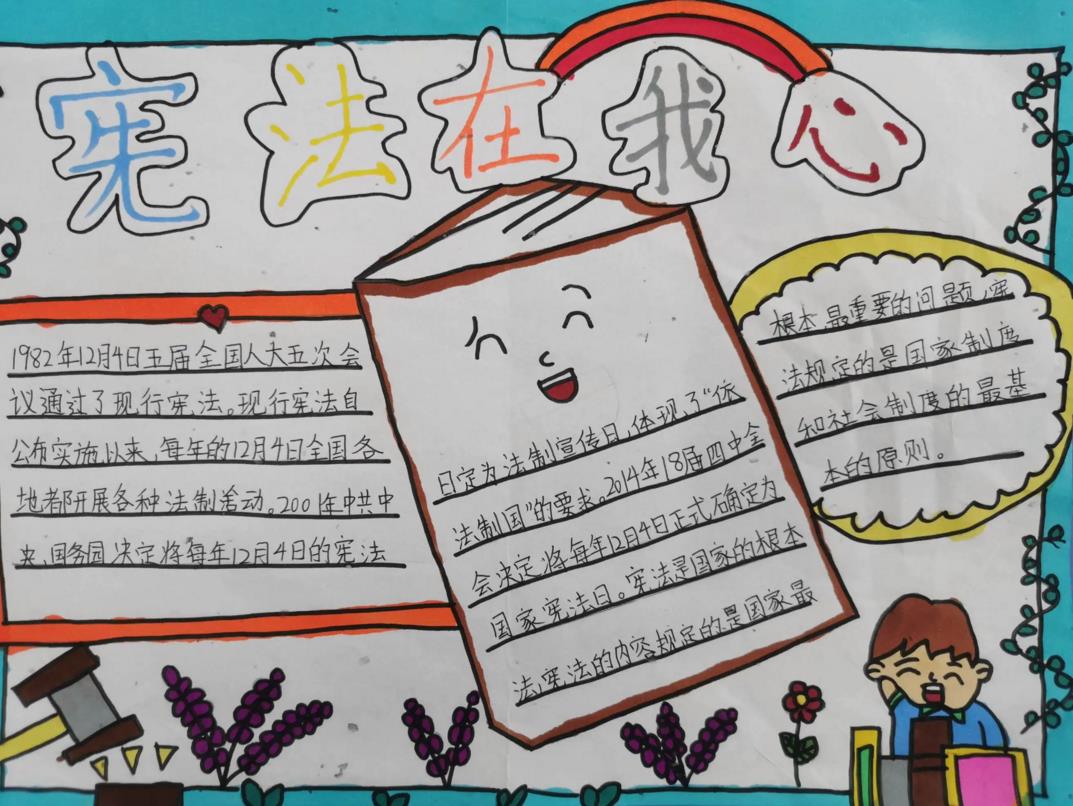 宪法在我心
1982年12月4日五届全国人大五次会
议通过了现行宪法。现行宪法自
公布实施以来,每年的12月4日全国各
地都开展各种法制活动。2001年中共中
央,国务园决定将每年12月4日的宪法
日定为法制宣传日,体现了“依
法制国”的要求。2014年18届四中全
会决定将每年12月4日正式确定为
国家宪法日。宪法是国家的根本
法,宪法的内容规定的是国家最
根本,最重要的问题,宪
法规定的是国家制度
和社会制度的最基
本的原则。